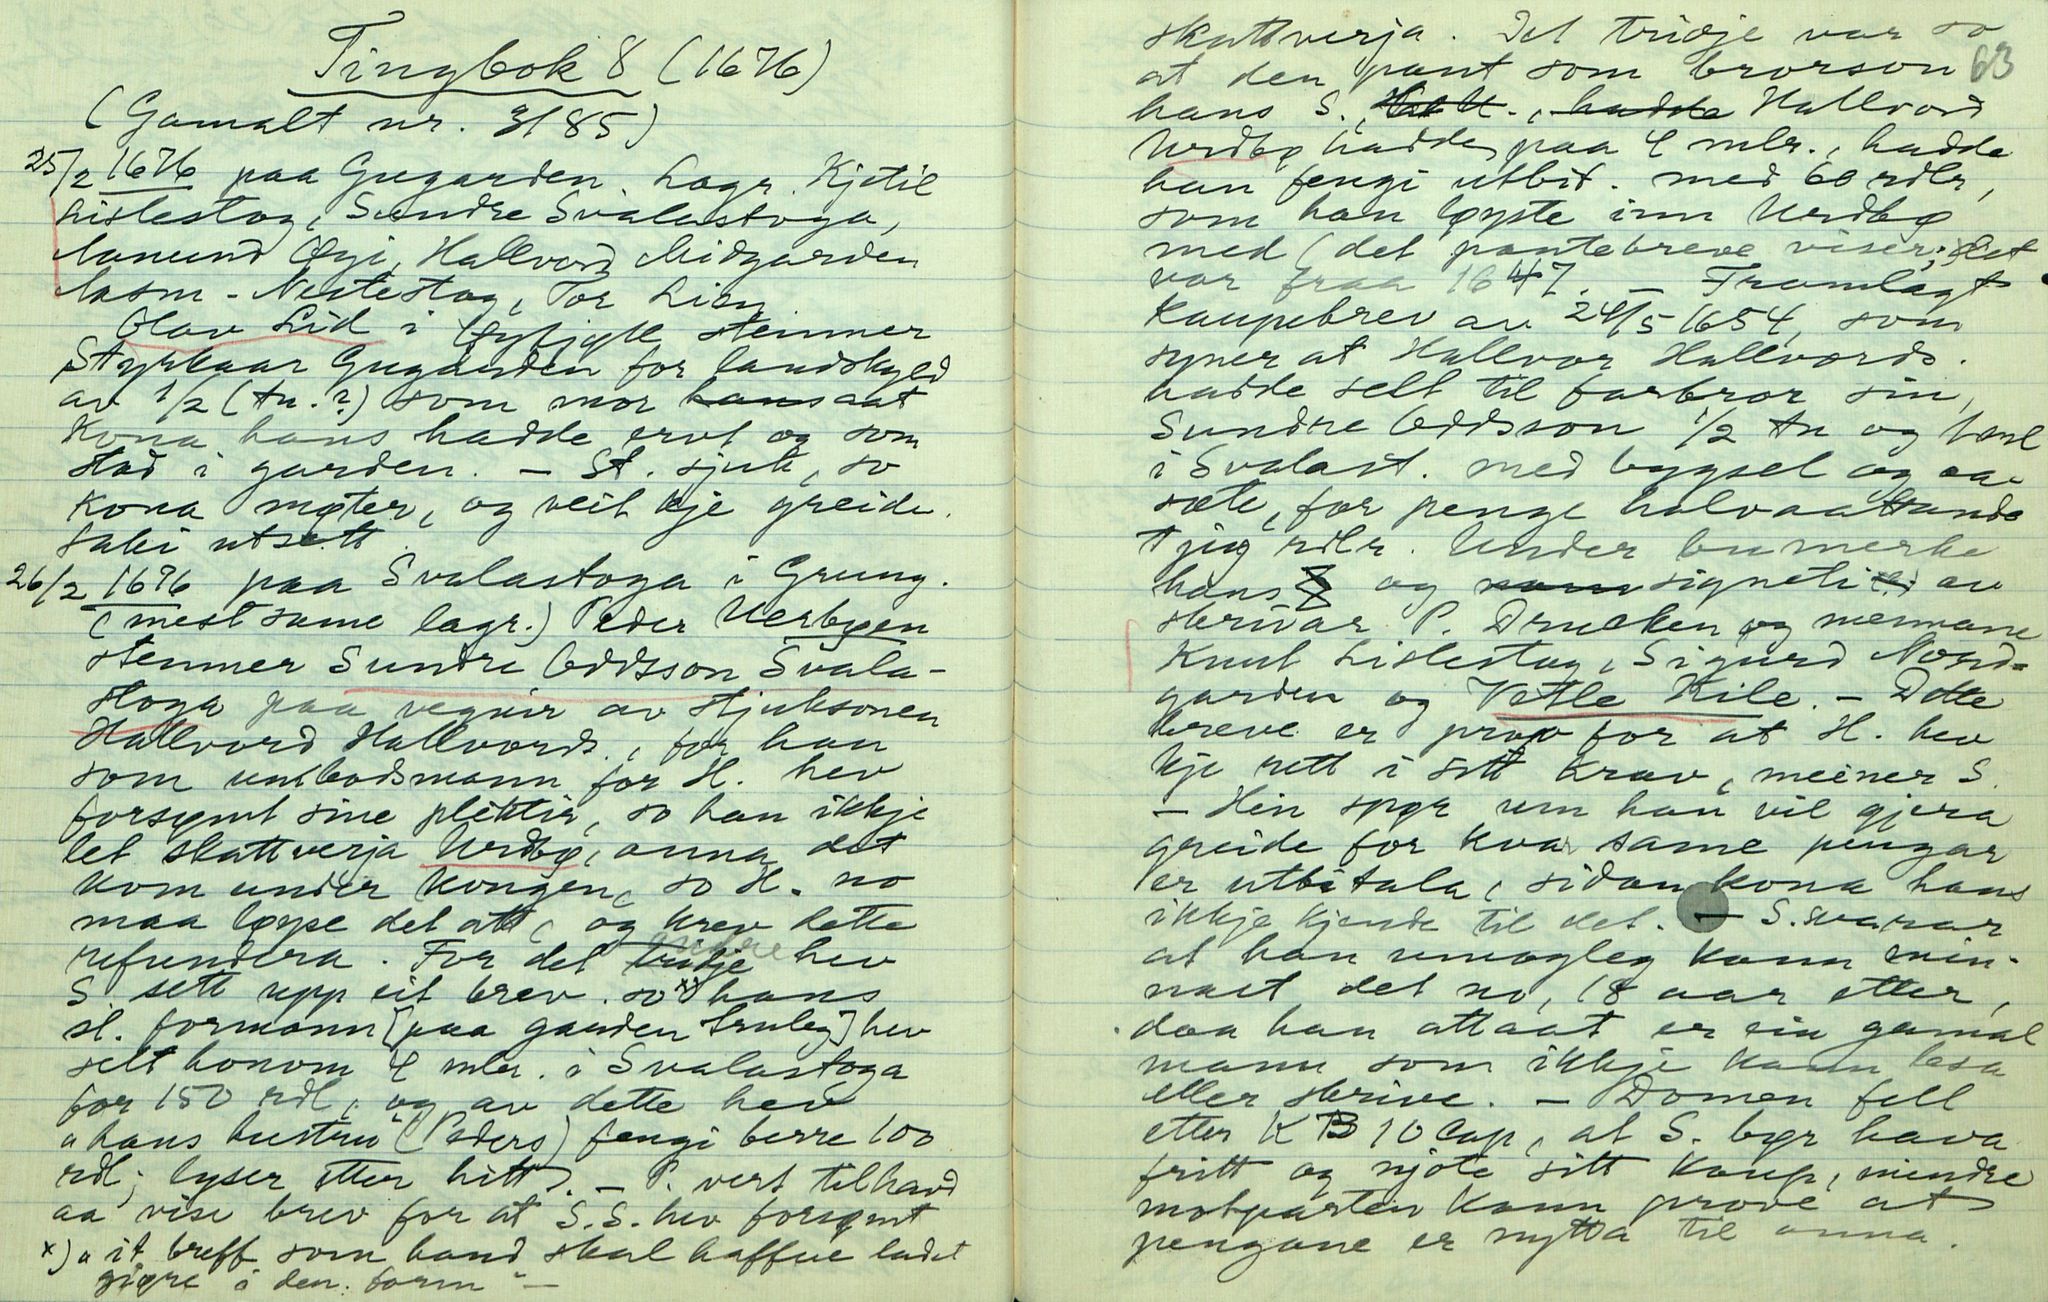 Tingbok 8 (1676)
(Gamalt nr. 3/85)
25/2 1676 paa Gugarden. Lagr. Kjetil
Lislestog, Sundre Svalastoga,
Aamund Øyi, Hallvord Midgarden
Aasm. Nestestog, Tor Lien
Olav Lid i stemner
Styrkaar Gugarden for landskyld
av 1/2 (tn.?) som mor hans aat
kona hans hadde ervt og som
stod i garden. – St. sjuk, so
kona møter, og veit kje greide.
Saki utsett.
26/2 1676 paa Svalastoga i Grung.
(mest same lagr.) Peder Uerbøen
stemner Sundre Oddsson Svala-
stoga paa vegnir av stjuksonen
Hallvord Hallvords., for han
som umbodsmann for H. hev
forsømt sine pliktir, so han ikkje
let skattverja Urdbø, anna det
kom under kongen, so H. no
maa løyse det att, og krev dette
refundera. For det tridje andre hev
S. sett upp eit brev so x) hans
sl. formann [paa garden truleg] hev
selt honom 4 mlr. i Svalastoga
for 150 rdl, og av dette hev
"hans hustru" (Peders) fengi berre 100
rdl; lyser etter hitt. – P. vert tilhavd
aa vise brev for at S.S. hev forsømt
x) "it breff som hand skal haffue ladet
giøre i den form" –
skattverja. Det tridje var so
63
at den pant som brorson
hans S., hadde Hallvord
Urdbø hadde paa 4 mlr., hadde
han fengi utbit. med 60 rdlr,
som han løyste inn Urdbø
med (det pantebreve viser; det
var fraa 1647. – Framlagt
Kaupebrev av 24/5 1654, som
syner at Hallvor Hallvords.
hadde selt til farbror sin,
Sundre Oddsson 1/2 tn og
i Svalast. med bygsel og aa-
sæte, for penge halvaattande
tjug rdlr. Under bumerke
hans og som signeti av
skrivar P. Drucken og nemnane
Knut Lislestog, Sigurd Nord-
garden og Vetle Kile. – Dette
breve er prov for at H. hev
kje rett i sitt krav, meiner S.
– Hin spør um han vil gjera
greide for kvar same pengar
er utbitala, sidan kona hans
ikkje kjende til det. – S. svarar
at han umogleg kann min-
nast det no, 18 aar etter,
daa han attaat er ein gamal
mann som ikkje kann lesa
eller skrive. – Domen fell
etter K B 10 Cap, at S. bør hava
fritt og njote sitt kaup, mindre
motparten kann prove at
pengane er nytta til anna.